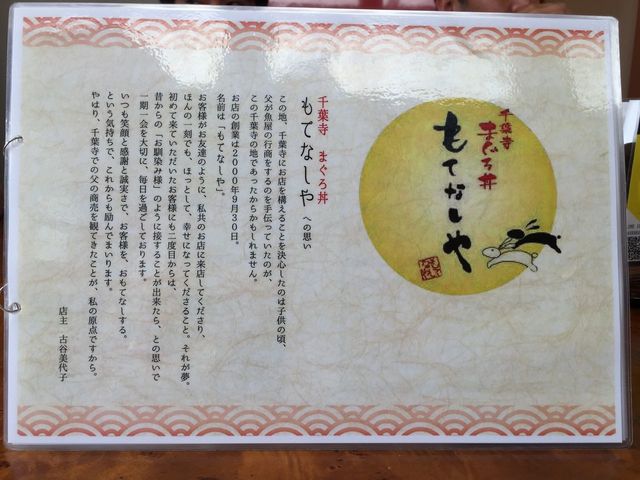 千葉寺
まぐろ丼
もてなしや
千葉寺 まぐろ丼
もてなしや への思い
この地、千葉寺にお店を構えることを決心したのは子供の頃、
父が魚屋の行商をするのを手伝っていたのが、
この千葉寺の地であったからかもしれません。
お店の創業は2000年9月30日。
名前は「もてなしや」。
お客様がお友達のように、私共のお店に来店してくださり、
ほんの一刻でも、ほっとして、幸せになってくださること。それが夢。
初めて来ていただいたお客様にも二度目からは、
昔からの「お馴染み様」のように接することが出来たら、との思いで
一期一会を大切に、毎日を過ごしております。
いつも笑顔と感謝と誠実さで、お客様を、おもてなしする。
という気持ちで、これからも励んでまいります。
やはり、千葉寺での父の商売を観てきたことが、私の原点ですから。
店主 古谷美代子